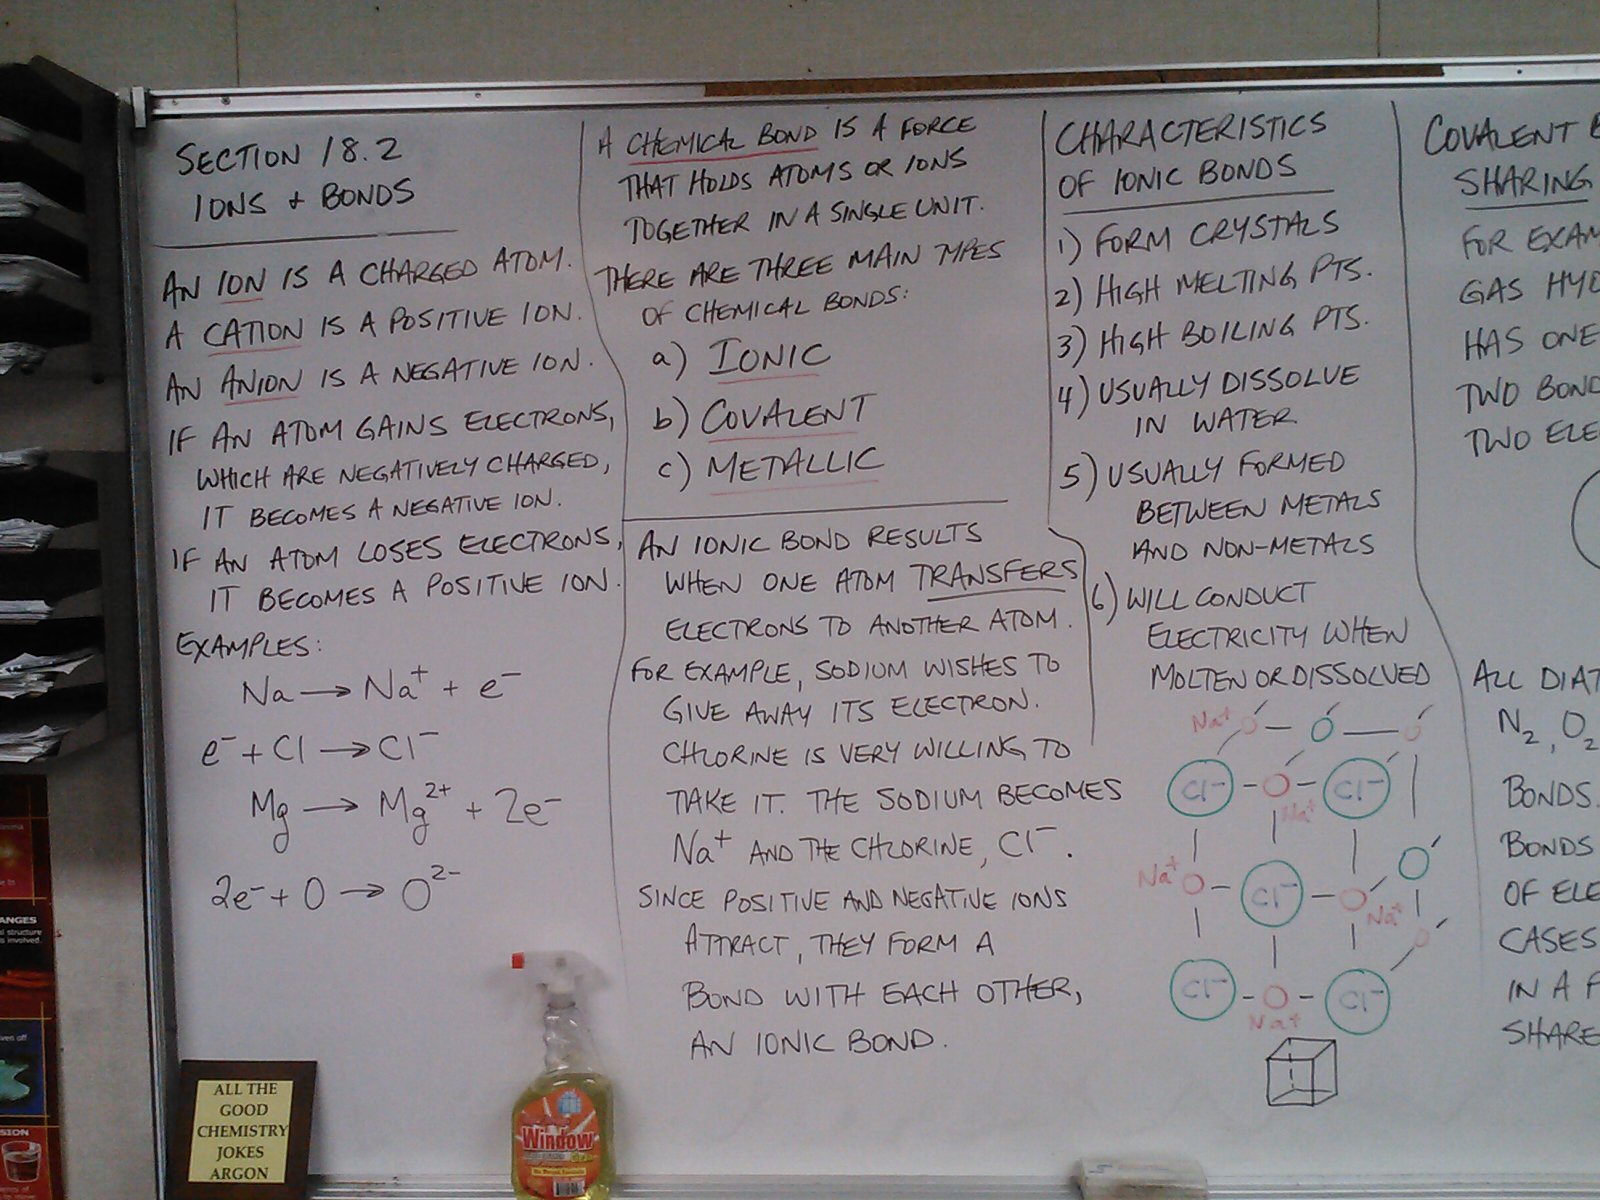 SECTION 18.2
IONS + BONDS
AN ION IS A CHARGED ATOM.
A CATION IS A POSITIVE ION.
AN ANION IS A NEGATIVE ION.
IF AN ATOM GAINS ELECTRONS,
WHICH ARE NEGATIVELY CHARGED,
IT BECOMES A NEGATIVE ION.
IF AN ATOM LOSES ELECTRONS,
IT BECOMES A POSITIVE ION.
EXAMPLES:
Na → Na⁺ + e⁻
e⁻ + Cl → Cl⁻
Mg → Mg²⁺ + 2e⁻
2e⁻ + O → O²⁻
A CHEMICAL BOND IS A FORCE
THAT HOLDS ATOMS OR IONS
TOGETHER IN A SINGLE UNIT.
THERE ARE THREE MAIN TYPES
OF CHEMICAL BONDS:
a) IONIC
b) COVALENT
c) METALLIC
AN IONIC BOND RESULTS
WHEN ONE ATOM TRANSFERS
ELECTRONS TO ANOTHER ATOM.
FOR EXAMPLE, SODIUM WISHES TO
GIVE AWAY ITS ELECTRON.
CHLORINE IS VERY WILLING TO
TAKE IT. THE SODIUM BECOMES
Na⁺ AND THE CHLORINE, Cl⁻.
SINCE POSITIVE AND NEGATIVE IONS
ATTRACT, THEY FORM A
BOND WITH EACH OTHER,
AN IONIC BOND.
CHARACTERISTICS
OF IONIC BONDS
1) FORM CRYSTALS
2) HIGH MELTING PTS.
3) HIGH BOILING PTS.
4) USUALLY DISSOLVE
IN WATER
5) USUALLY FORMED
BETWEEN METALS
AND NON-METALS
6) WILL CONDUCT
ELECTRICITY WHEN
MOLTEN OR DISSOLVED
Na⁺
Cl⁻ Cl⁻
Na⁺
Na⁺ Cl⁻
Na⁺
Cl⁻ Cl⁻
Na⁺
COVALENT B
SHARING
FOR EXAM
GAS HYD
HAS ONE
TWO BOND
TWO ELE
ALL DIAT
N₂, O₂
BONDS.
BONDS
OF ELE
CASES
IN A P
SHARE
ALL THE
GOOD
CHEMISTRY
JOKES
ARGON
Window
ANGES
al structure
is involved.
ven off
SION